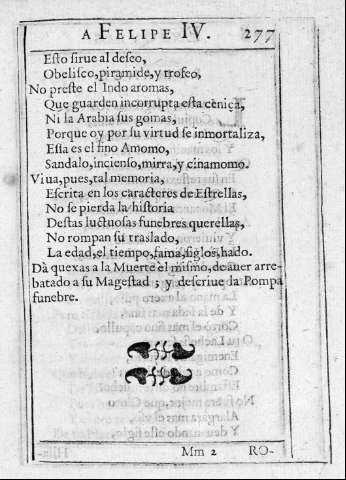 A FELIPE IV. 277
Eſto ſirue al deſeo,
Obeliſco, piramide, y trofeo,
No preſte el Indo aromas,
Que guarden incorrupta eſta ceniça,
Ni la Arabia ſus gomas,
Porque oy por ſu virtud ſe inmortaliza,
Eſſa es el fino Amomo,
Sandalo, incienſo, mirra, y cinamomo.
Viua, pues, tal memoria,
Eſcrita en los caracteres de Eſtrellas,
No ſe pierda la hiſtoria
Deſtas luctuoſas funebres querellas,
No rompan ſu traslado,
La edad, el tiempo, fama, ſiglos, hado.
Dà quexas a la Muerte el miſmo, de auer arre-
batado a ſu Mageſtad ; y deſcriue la Pompa
funebre.
Mm 2 RO-